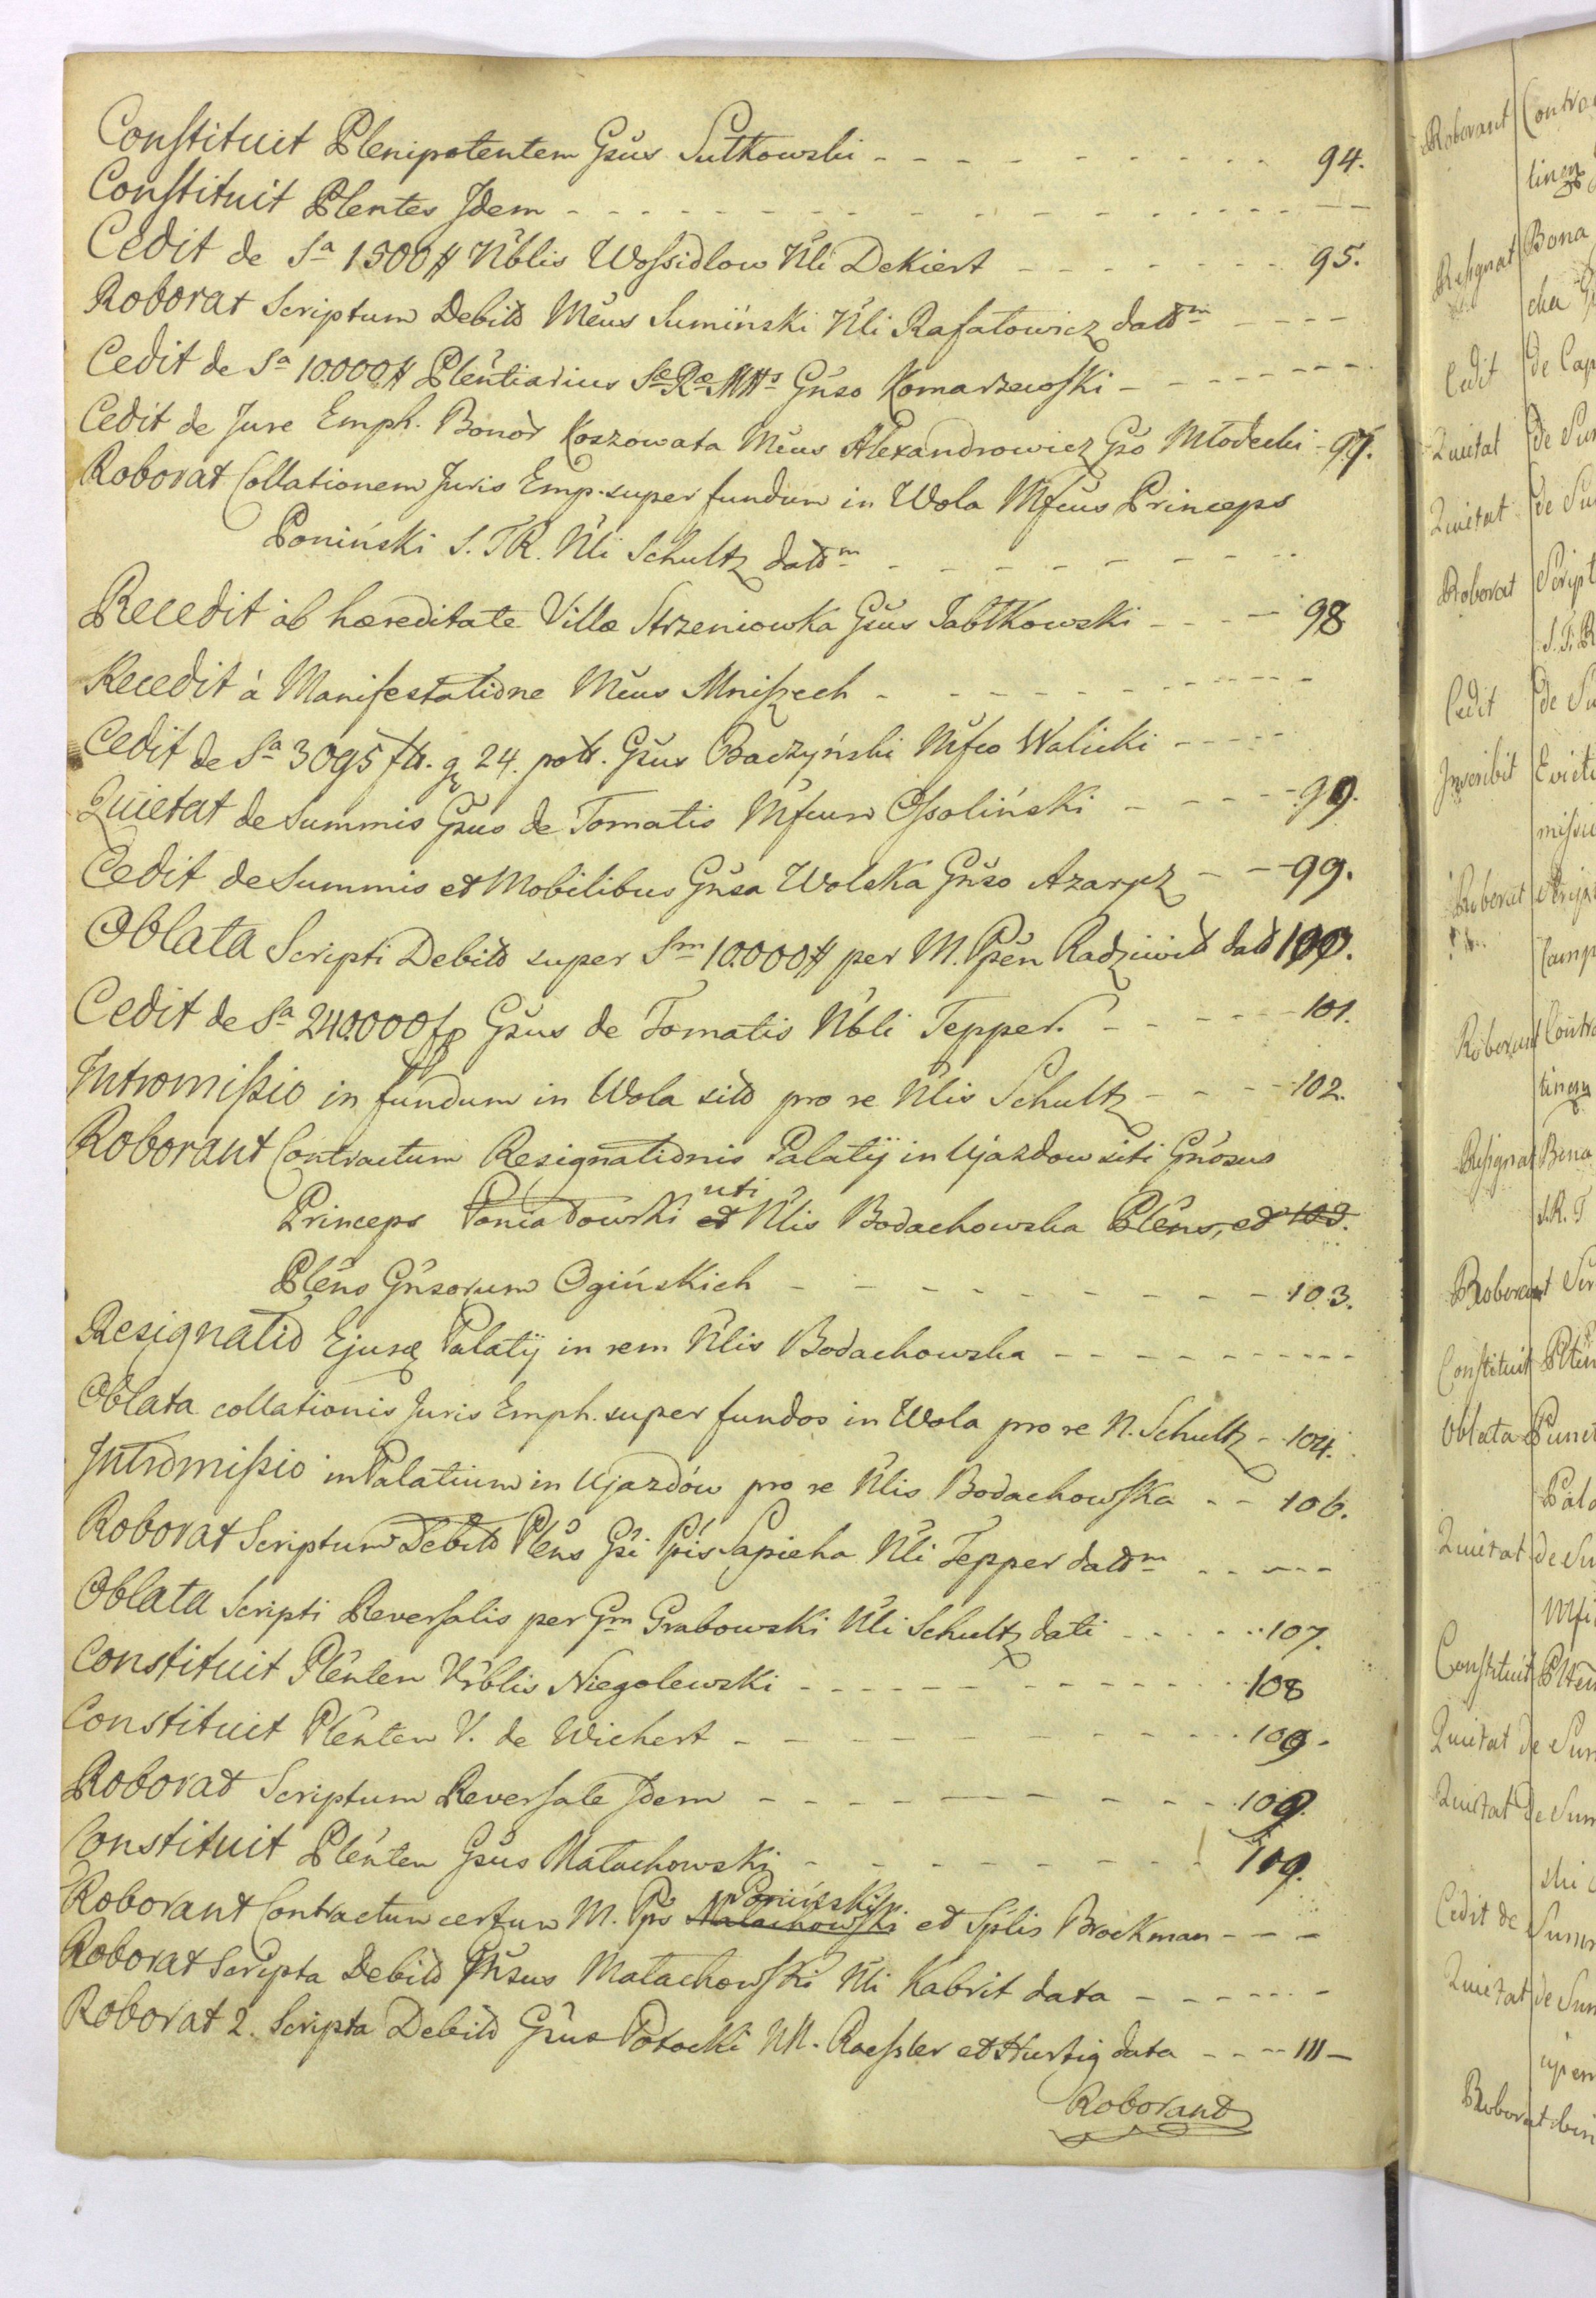 Constituit Plenipotentem Gsus Sułkowski - - - - - - - - - 94.
Constituit Plentes Idem - - - - - - - - - - - - - - - -
Cedit de Sa 1500# Nblis Wossidlow Nli Dekiert - - - - - - - 95.
Roborat Scriptum Debiti Mcus Sumiński Nli Rafałowicz datm - - - -
Cedit de Sa 10.000# Plentiarius Gnso Komarzewski - - - - - - -
Cedit de Jure Emph. Bonor Koszowata Mcus Alexandrowicz Gso Młodecki - 97.
Roborat Collationem Juris Emp. super fundum in Wola Mfcus Princeps
Poniński S. T R. Nli Schultz datm - - - - - - - -
Recedit ab hæreditate Villæ Strzeniowka Gsus Jabłkowski - - - - 98
Recedit à Manifestatione Mcus Mniszech - - - - - - - - -
Cedit de Sa 3095 ftt. g 24. pott. Gsus Baczyński Mfco Walicki - - - - -
Quietat de Summis Gsus de Tomatis Mfcum Ossoliński - - - - - 99.
Cedit de Summis et Mobilibus Gnsa Wolska Gnso Azarycz - - 99.
Oblata Scripti Debiti super Sm 10.000# per M. Ppen Radziwiłł dati 100.
Cedit de Sa 240.000 fp Gsus de Tomatis Nbli Tepper. - - - - - - 101.
Intromissio in fundum in Wola sito pro re Nlis Schultz - - - - 102.
Roborant Contractum Resignationis Palatij in Ujazdow siti Gnosus
Princeps Poniatowski et uti Nlis Bodachowska Plens, et 103.
Plens Gnsorum Ogińskich - - - - - - - - - 103.
Resignatio Ejusq Palatij in rem Nlis Bodachowska - - - - - - - - - -
Oblata collationis Juris Emph. super fundos in Wola pro re N. Schultz - 104.
Intromissio in Palatium in Ujazdów pro re Nlis Bodachowska - - 106.
Roborat Scriptum Debiti Plens Gsi Ppis Sapieha Nli Tepper datm - - - - -
Oblata Scripti Reversalis per Gm Grabowski Nli Schultz dati - - - - - 107.
Constituit Plenten Nblis Niegolewski - - - - - - - - - - - 108
Constituit Plenten N. de Wichert - - - - - - - - - - - 109.
Roborat Scriptum Reversale Idem - - - - - - - - - - 109.
Constituit Plenten Gsus Małachowski - - - - - - - - 109.
Roborant Contractum certum M. Pps Małachowski Poniński et Splis Brockman - - -
Roborat Scripta Debiti Gnsus Małachowski Nli Kabrit data - - - - - - -
Roborat 2. Scripta Debiti Gsus Potocki NN. Raessler et Hurtig data - - - - 111 -
Roborant
Roborant Contra
Resignat Bona
cha
Cedit de Cap
Quietat de Sum
Quietat de Su
Roborat Script
S. T. R
Cedit de Su
Inscribit Evicti
missi
Roborat
Camp
Roborant Contra
Resignat Bona
S. R. T
Roborant Scr
Constituit Plen
Oblata Punct
Pala
Quietat de Su
Mfi
Constituit Plten
Quietat de Sum
Quietat de Sum
Cedit de Sum
Quietat de Sum
Roborat